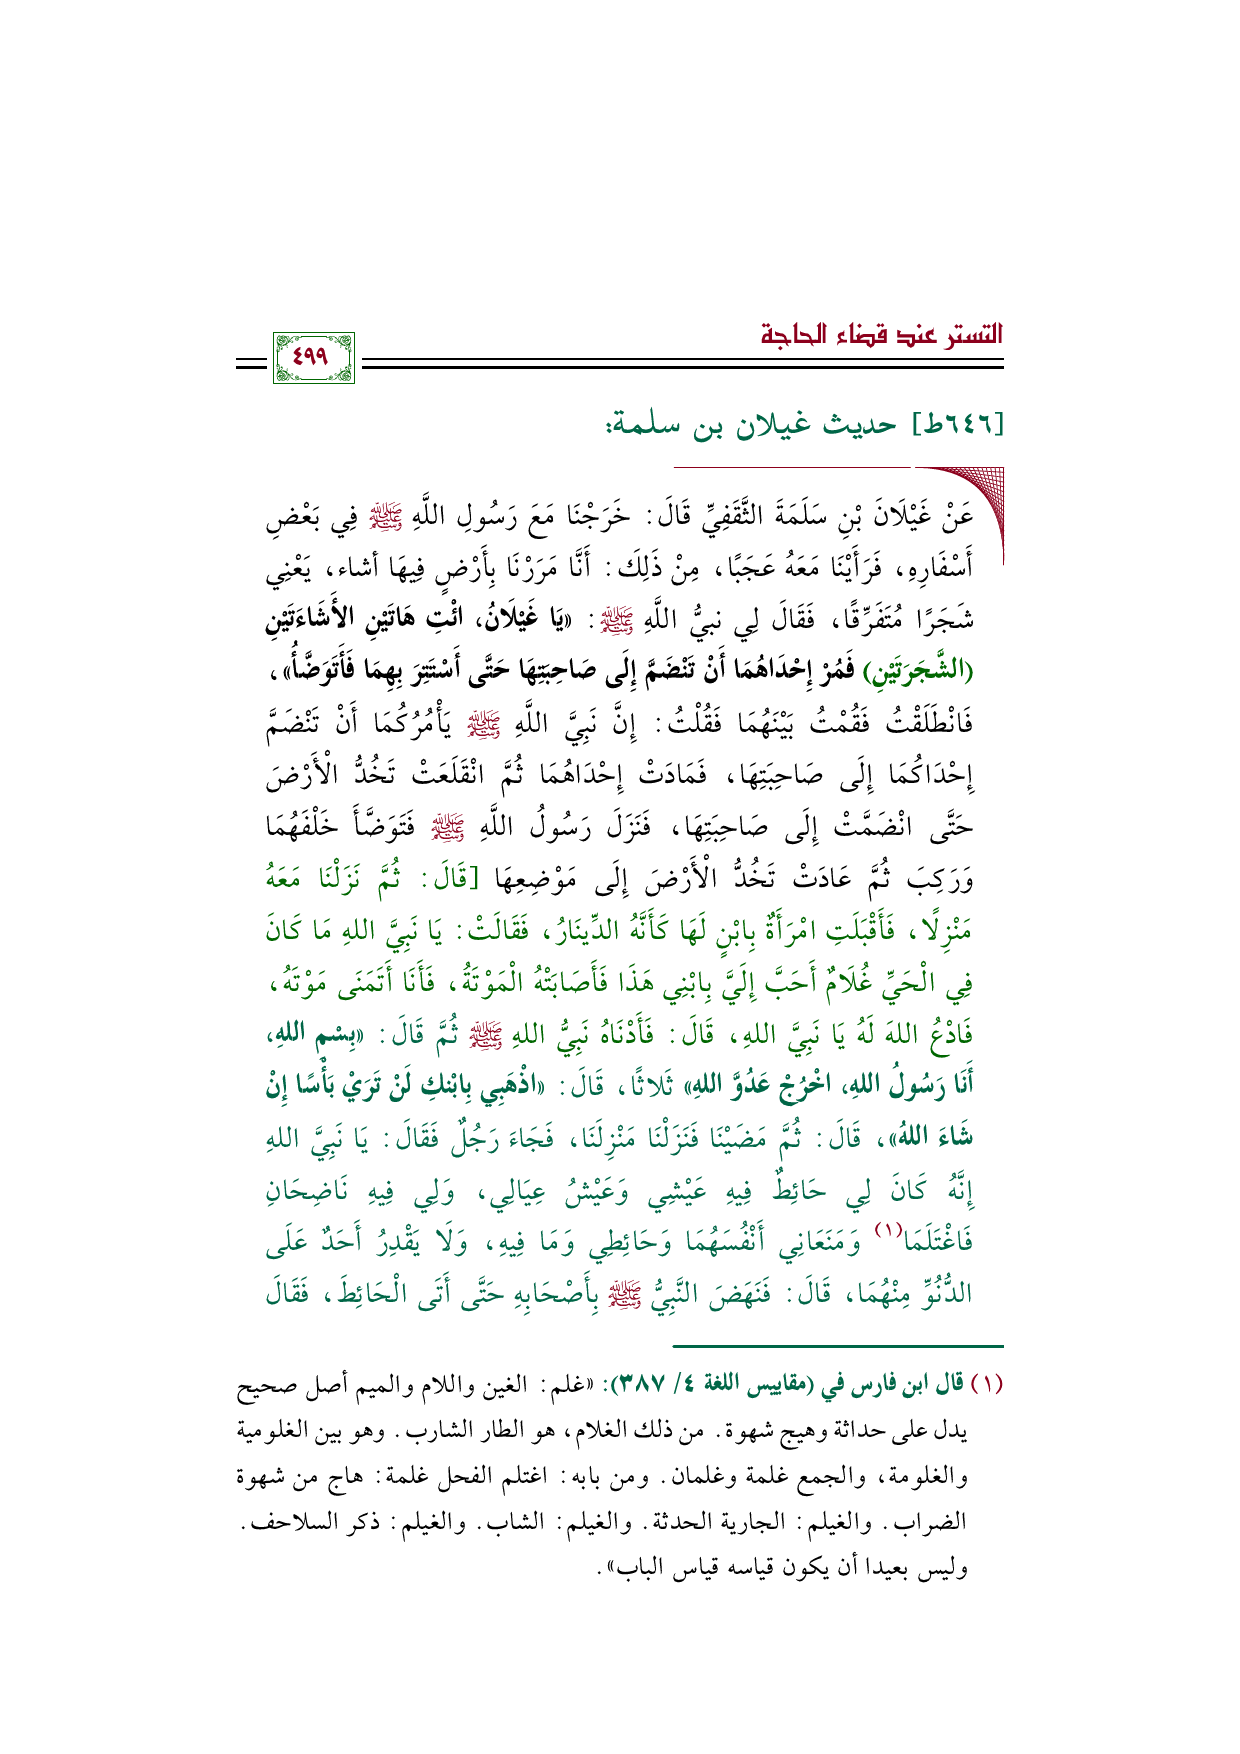 التستر عند قضاء الحاجة
٤٩٩
[٦٤٦ط] حديث غيلان بن سلمة:
عَنْ غَيْلَانَ بْنِ سَلَمَةَ الثَّقَفِيِّ قَالَ: خَرَجْنَا مَعَ رَسُولِ اللَّهِ ﷺ فِي بَعْضِ
أَسْفَارِهِ، فَرَأَيْنَا مَعَهُ عَجَبًا، مِنْ ذَلِكَ: أَنَّا مَرَرْنَا بِأَرْضٍ فِيهَا أشاء، يَعْنِي
شَجَرًا مُتَفَرِّقًا، فَقَالَ لِي نبيُّ اللَّهِ ﷺ: «يَا غَيْلَانُ، ائْتِ هَاتَيْنِ الأَشَاءَتَيْنِ
(الشَّجَرَتَيْنِ) فَمُرْ إِحْدَاهُمَا أَنْ تَنْضَمَّ إِلَى صَاحِبَتِهَا حَتَّى أَسْتَتِرَ بِهِمَا فَأَتَوَضَّأُ»،
فَانْطَلَقْتُ فَقُمْتُ بَيْنَهُمَا فَقُلْتُ: إِنَّ نَبِيَّ اللَّهِ ﷺ يَأْمُرُكُمَا أَنْ تَنْضَمَّ
إِحْدَاكُمَا إِلَى صَاحِبَتِهَا، فَمَادَتْ إِحْدَاهُمَا ثُمَّ انْقَلَعَتْ تَخُدُّ الْأَرْضَ
حَتَّى انْضَمَّتْ إِلَى صَاحِبَتِهَا، فَنَزَلَ رَسُولُ اللَّهِ ﷺ فَتَوَضَّأَ خَلْفَهُمَا
وَرَكِبَ ثُمَّ عَادَتْ تَخُدُّ الْأَرْضَ إِلَى مَوْضِعِهَا [قَالَ: ثُمَّ نَزَلْنَا مَعَهُ
مَنْزِلًا، فَأَقْبَلَتِ امْرَأَةٌ بِابْنٍ لَهَا كَأَنَّهُ الدِّينَارُ، فَقَالَتْ: يَا نَبِيَّ اللهِ مَا كَانَ
فِي الْحَيِّ غُلَامٌ أَحَبَّ إِلَيَّ بِابْنِي هَذَا فَأَصَابَتْهُ الْمَوْتَةُ، فَأَنَا أَتَمَنَى مَوْتَهُ،
فَادْعُ اللهَ لَهُ يَا نَبِيَّ اللهِ، قَالَ: فَأَدْنَاهُ نَبِيُّ اللهِ ﷺ ثُمَّ قَالَ: «بِسْمِ اللهِ،
أَنَا رَسُولُ اللهِ، اخْرُجْ عَدُوَّ اللهِ» ثَلاثًا، قَالَ: «اذْهَبِي بِابْنكِ لَنْ تَرَيْ بَأْسًا إِنْ
شَاءَ اللهُ»، قَالَ: ثُمَّ مَضَيْنَا فَنَزَلْنَا مَنْزِلَنَا، فَجَاءَ رَجُلٌ فَقَالَ: يَا نَبِيَّ اللهِ
إِنَّهُ كَانَ لِي حَائِطٌ فِيهِ عَيْشِي وَعَيْشُ عِيَالِي، وَلِي فِيهِ نَاضِحَانِ
فَاغْتَلَمَا(١) وَمَنَعَانِي أَنْفُسَهُمَا وَحَائِطِي وَمَا فِيهِ، وَلَا يَقْدِرُ أَحَدٌ عَلَى
الدُّنُوِّ مِنْهُمَا، قَالَ: فَنَهَضَ النَّبِيُّ ﷺ بِأَصْحَابِهِ حَتَّى أَتَى الْحَائِطَ، فَقَالَ
(١) قال ابن فارس في (مقاييس اللغة ٤/ ٣٨٧): «غلم: الغين واللام والميم أصل صحيح
يدل على حداثة وهيج شهوة. من ذلك الغلام، هو الطار الشارب. وهو بين الغلومية
والغلومة، والجمع غلمة وغلمان. ومن بابه: اغتلم الفحل غلمة: هاج من شهوة
الضراب. والغيلم: الجارية الحدثة. والغيلم: الشاب. والغيلم: ذكر السلاحف.
وليس بعيدا أن يكون قياسه قياس الباب».